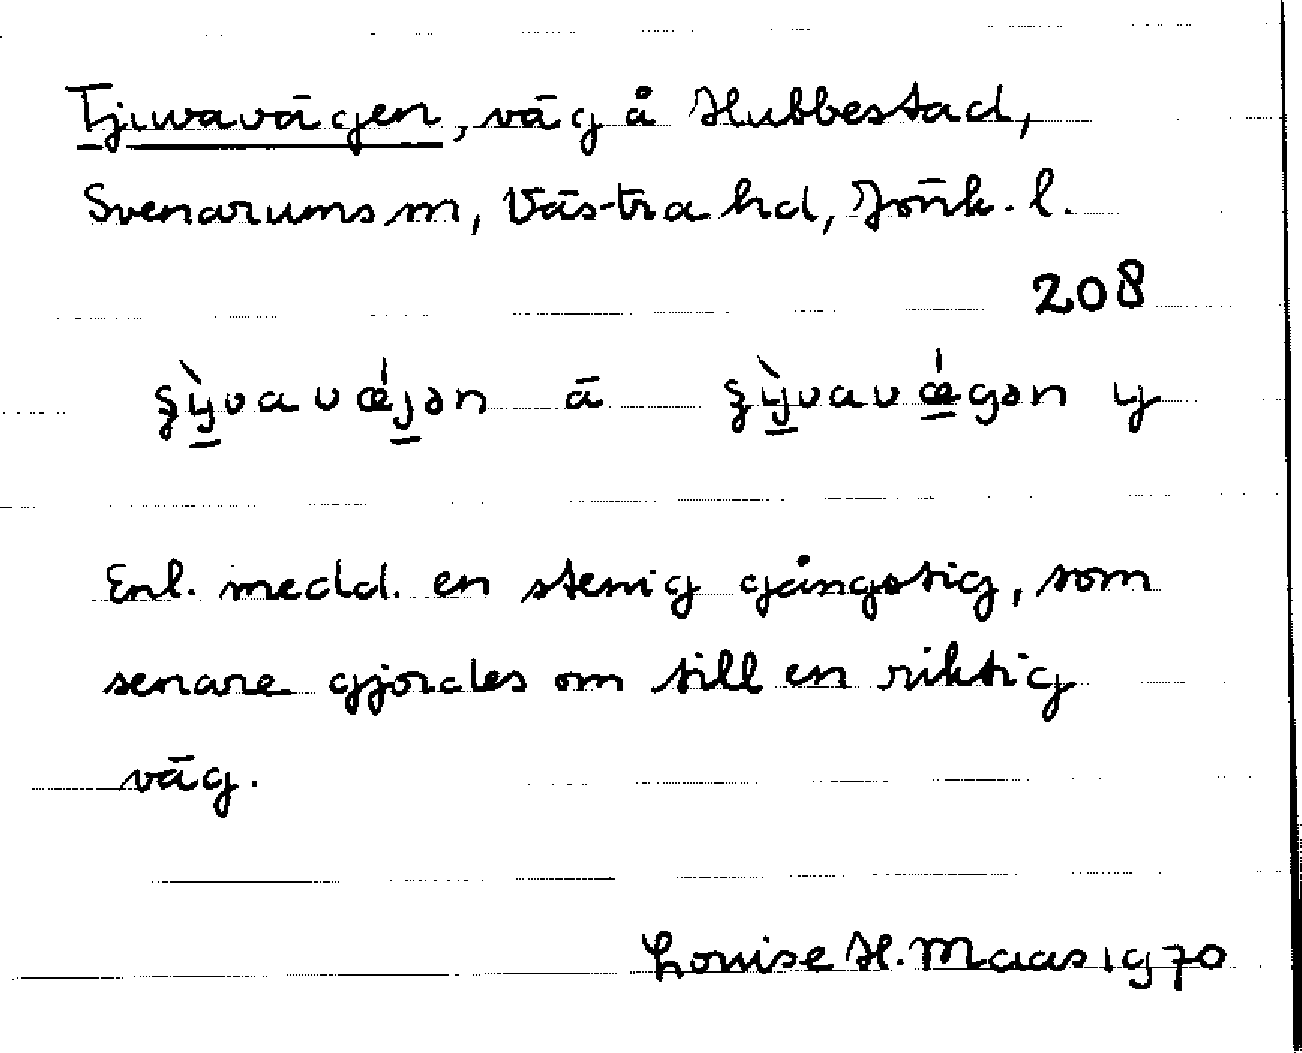 Tjuvavägen, väg å Hubbestad,
Svenarums sn, Västra hd, Jönk. l.
208
ʂỳvavǽjən ä ʂỳvavǽgən y
Enl. medd. en stenig gångstig, som
senare gjordes om till en riktig
väg.
Louise H. Maas 1970